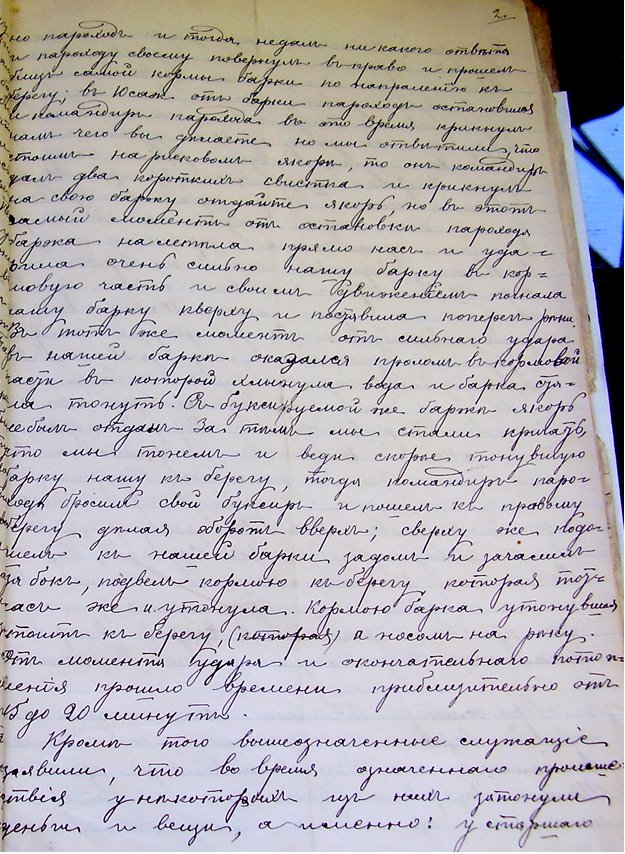 2.
но пароходъ и тогда недалъ никакого отвѣта
и пароходу своему повернулъ въ право и прошелъ
близъ самой кормы баржи по направленію къ
берегу; въ 10саж отъ баржи пароходъ остановился
и командиръ парохода въ это время крикнулъ
намъ чего вы дѣлаете но мы отвѣтили, что
стоимъ на рисковомъ якорѣ, то онъ командиръ
далъ два короткихъ свистка и крикнулъ
на свою баржу отдайте якорь, но въ этотъ
самый моментъ отъ остановки парохода
баржа налетѣла прямо насъ и уда-
рила очень сильно нашу баржу въ кор-
мовую часть и своимъ движеніемъ погнала
нашу баржу кверху и поставила поперегъ рѣки.
Въ тотъ же моментъ отъ сильнаго удара
въ нашей баржѣ оказался проломъ въ кормовой
части въ которой хлынула вода и баржа ста-
ла тонуть. Съ буксируемой же баржи якорь
не былъ отданъ. За тѣмъ мы стали кричать,
что мы тонемъ и веди скорѣе тонувшую
баржу нашу къ берегу, тогда командиръ паро-
хода бросилъ свой буксиръ и пошелъ къ правому
берегу дѣлая оборотъ вверхъ; сверху же подо-
шелъ къ нашей баржи задомъ и зачалилъ
за бокъ, подвелъ кормою къ берегу которая тот-
часъ же и утонула. Кормою баржа утонувшая
стоитъ къ берегу, (которая) а носомъ на рѣку.
Отъ момента удара и окончательнаго потоп-
ленія прошло времени приблизительно отъ
15 до 20 минутъ.
Кромѣ того вышеозначенные служащіе
заявили, что во время означеннаго происше-
ствія у нѣкоторыхъ изъ нихъ затонули
деньги и вещи, а именно: у старшаго